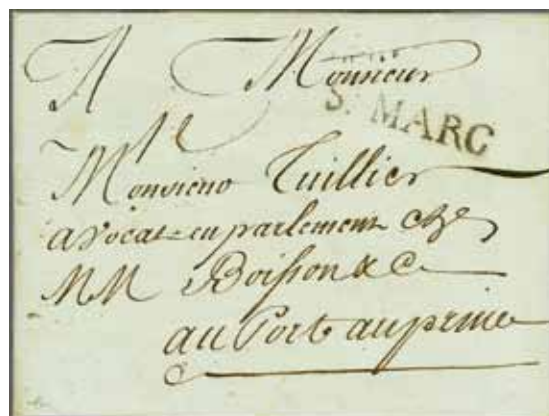 A Monsieur
S. MARC
Monsieur Tuillier
avocat en parlement chz
MM Boisson & C
au Port au prince